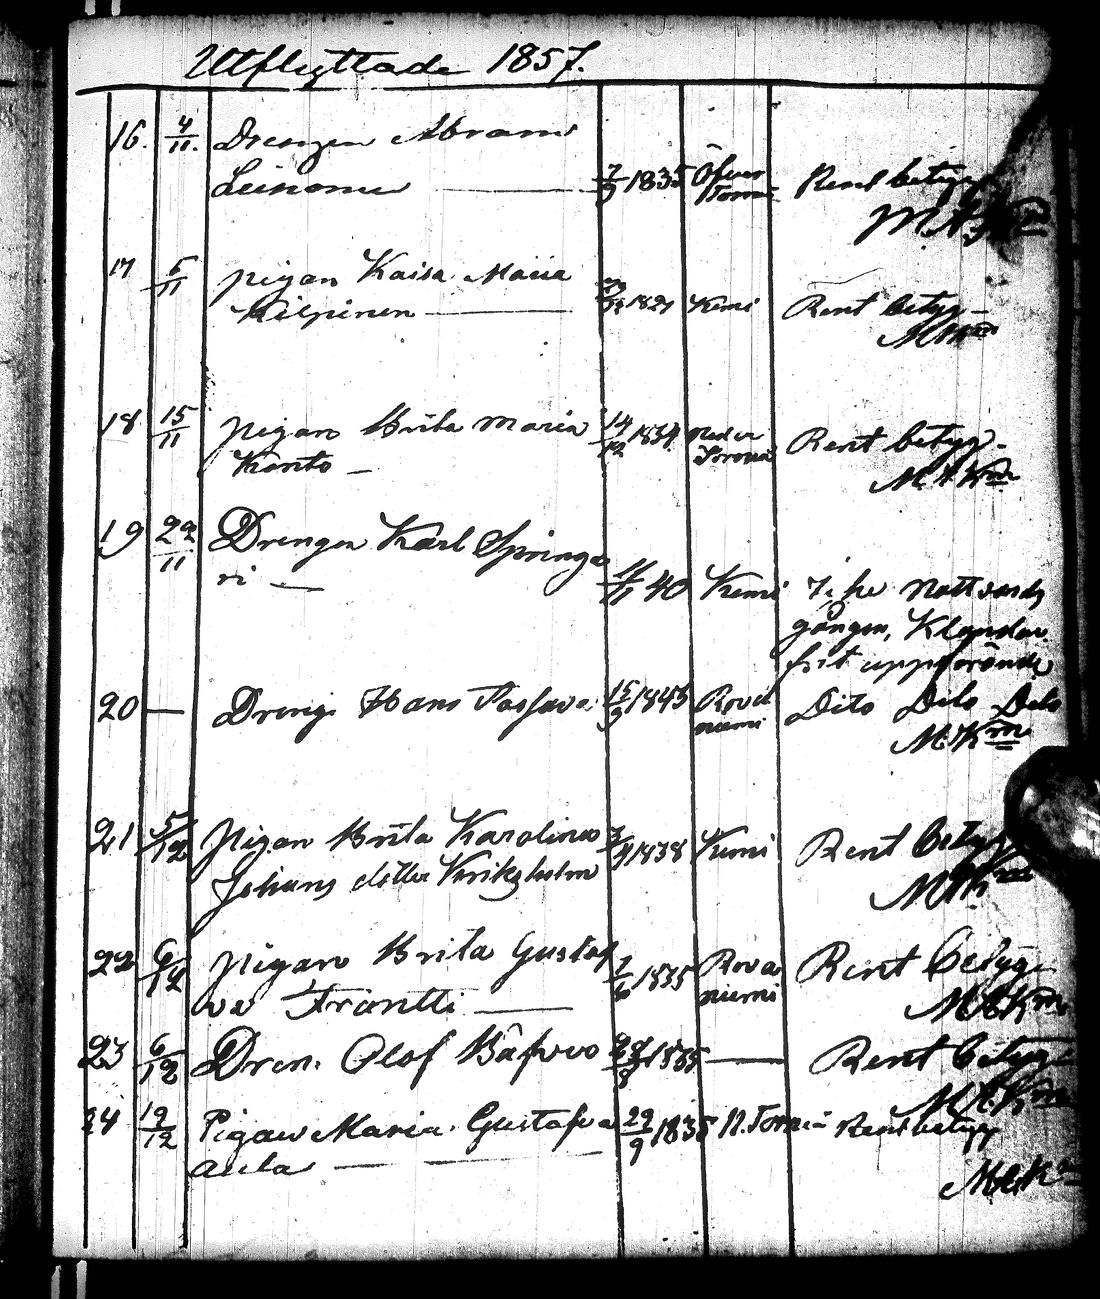 Utflyttade 1857.
16. 4/11. Drengen Abram
Leinonen 7/9 1835 Öfver Torneå Rent betyg
17 5/11 pigan Kaisa Maria
Kilpinen 1821 Kemi Rent betyg
18 15/11 pigan Brita Maria
Känto 14/12 1834 Neder Torneå Rent betyg.
M.A.Km
19 22/11 Drengen Karl Springo
ri 40 Kemi Icke nattvards
gången, Klandar
frit uppförande
20 — Drengn Hans 15/9 1845 Rova niemi Dito Dito Dito
M.Km
21 5/12 Pigan Brita Karolina
Johans dotter 1838 Kemi Rent betyg
22 6/12 pigan Brita Gustaf
va Frantti 7/6 1835 Rova niemi Rent betyg
M.A.Km
23 6/12 Dren. Olof 1835 — Rent betyg
M.A.Km
24 19/12 Pigan Maria Gustafva
Aula 29/9 1835 N. Torneå Rent betyg